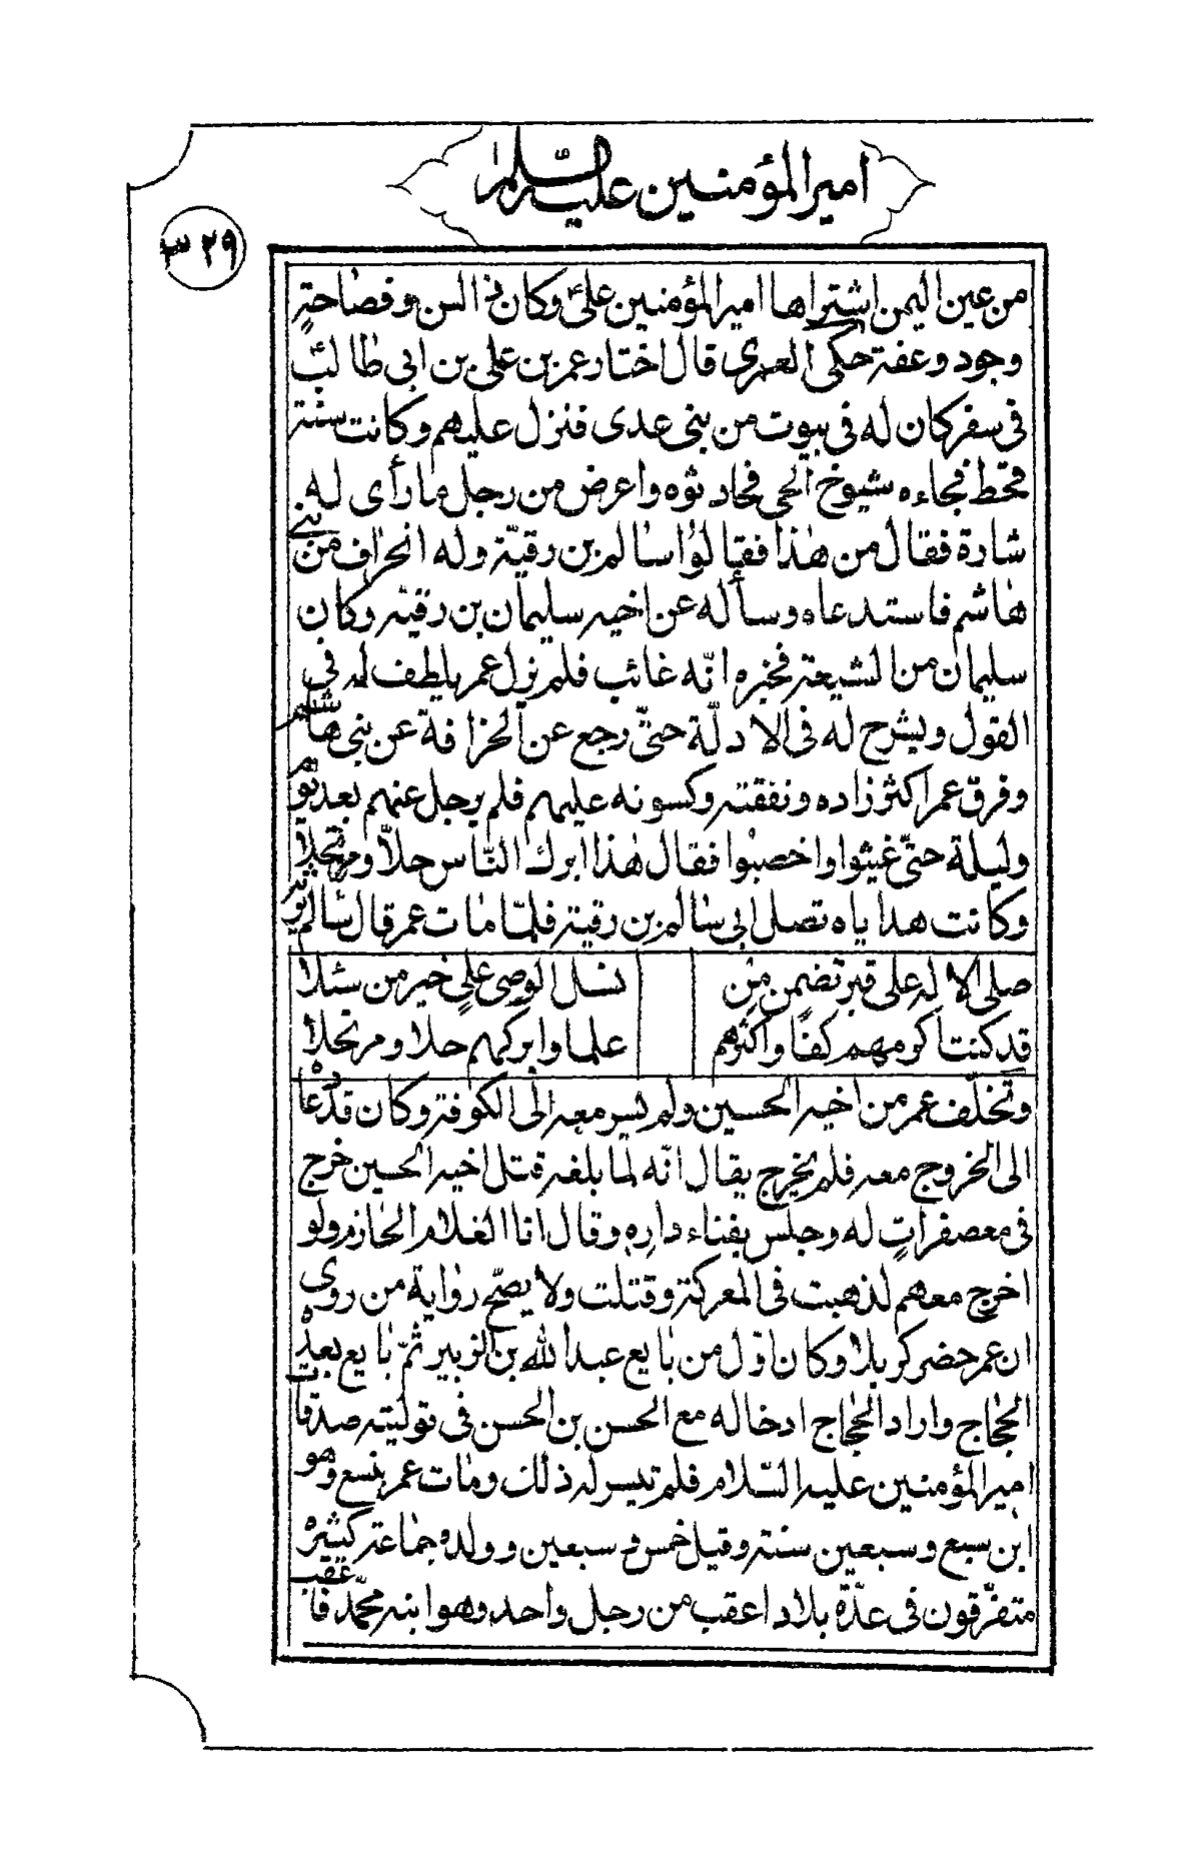 امير المؤمنين عليه السلام
٣٢٩
من عين اليمن اشتراها امير المؤمنين علىّ وكان ذا لسن وفصاحةٍ
وجود وعفة حكى العمرى قال اختار عمر بن على بن ابى طالب
فى سفر كان له فى بيوت من بنى عدى فنزل عليهم وكانت سنة
قحط فجاءه شيوخ الحى فحادثوه واعرض من رجل مارأى له
شارة فقال من هذا فقالوا سالم بن رقيّة وله انحراف من بنى
هاشم فاستدعاه وسأله عن اخيه سليمان بن رقيه وكان
سليمان من الشيعة فخبره انّه غائب فلم يزل عمر يلطف له فى
القول ويشرح له فى الادلّة حتّى رجع عن الخزافة عن بنى هاشم
وفرّق عمر اكثر زاده ونفقته وكسوته عليهم فلم يرحل عنهم بعد يوم
وليلة حتّى غيثوا واخصبوا فقال هذا ابرك النّاس حلاّ ومرتحلا
وكانت هداياه تصل الى سالم بن رقية فلمّا مات عمر قال سالم يرثيه
صلى الاله على قبر تضمن من نسل الوصى على خير من سئلا
قد كنت اكرمهم كفّا واكثرهم علما وابركهم حلا ومرتحلا
وتخلّف عمر من اخيه الحسين ولم يسر معه الى الكوفة وكان قد دعاه
الى الخروج معه فلم يخرج يقال انّه لما بلغه قتل اخيه الحسين خرج
فى معصفراتٍ له وجلس بفناء داره وقال انا الغلام الحازم ولو
اخرج معهم لذهبت فى المعركة وقتلت ولا يصحّ رواية من روى
ان عمر حضر كربلا وكان اوّل من بايع عبد الله بن الزبير ثمّ بايع بعده
الحجاج واراد الحجاج ادخاله مع الحسن بن الحسن فى توليته صدقات
امير المؤمنين عليه السّلام فلم تيسر له ذلك ومات عمر بينبع وهو
ابن سبع وسبعين سنة وقيل خمس وسبعين وولده جماعة كثيره
متفرّقون فى عدّة بلاد اعقب من رجل واحد وهو ابنه محمّد فاعقب